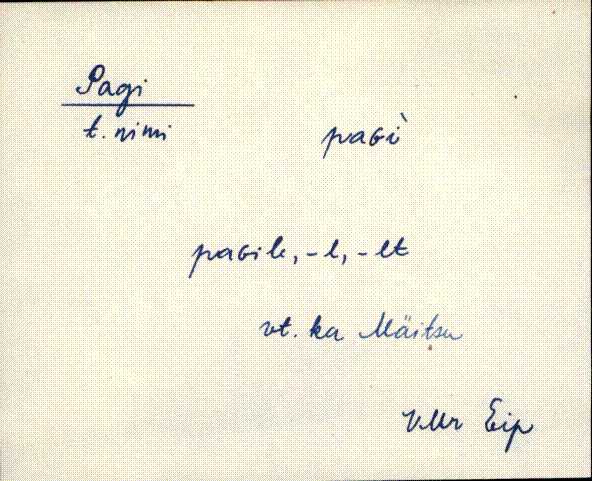 Pagi
t. nimi
paGì
paGile, -l, -lt
vt. ka Mäitsu
VMr Eip